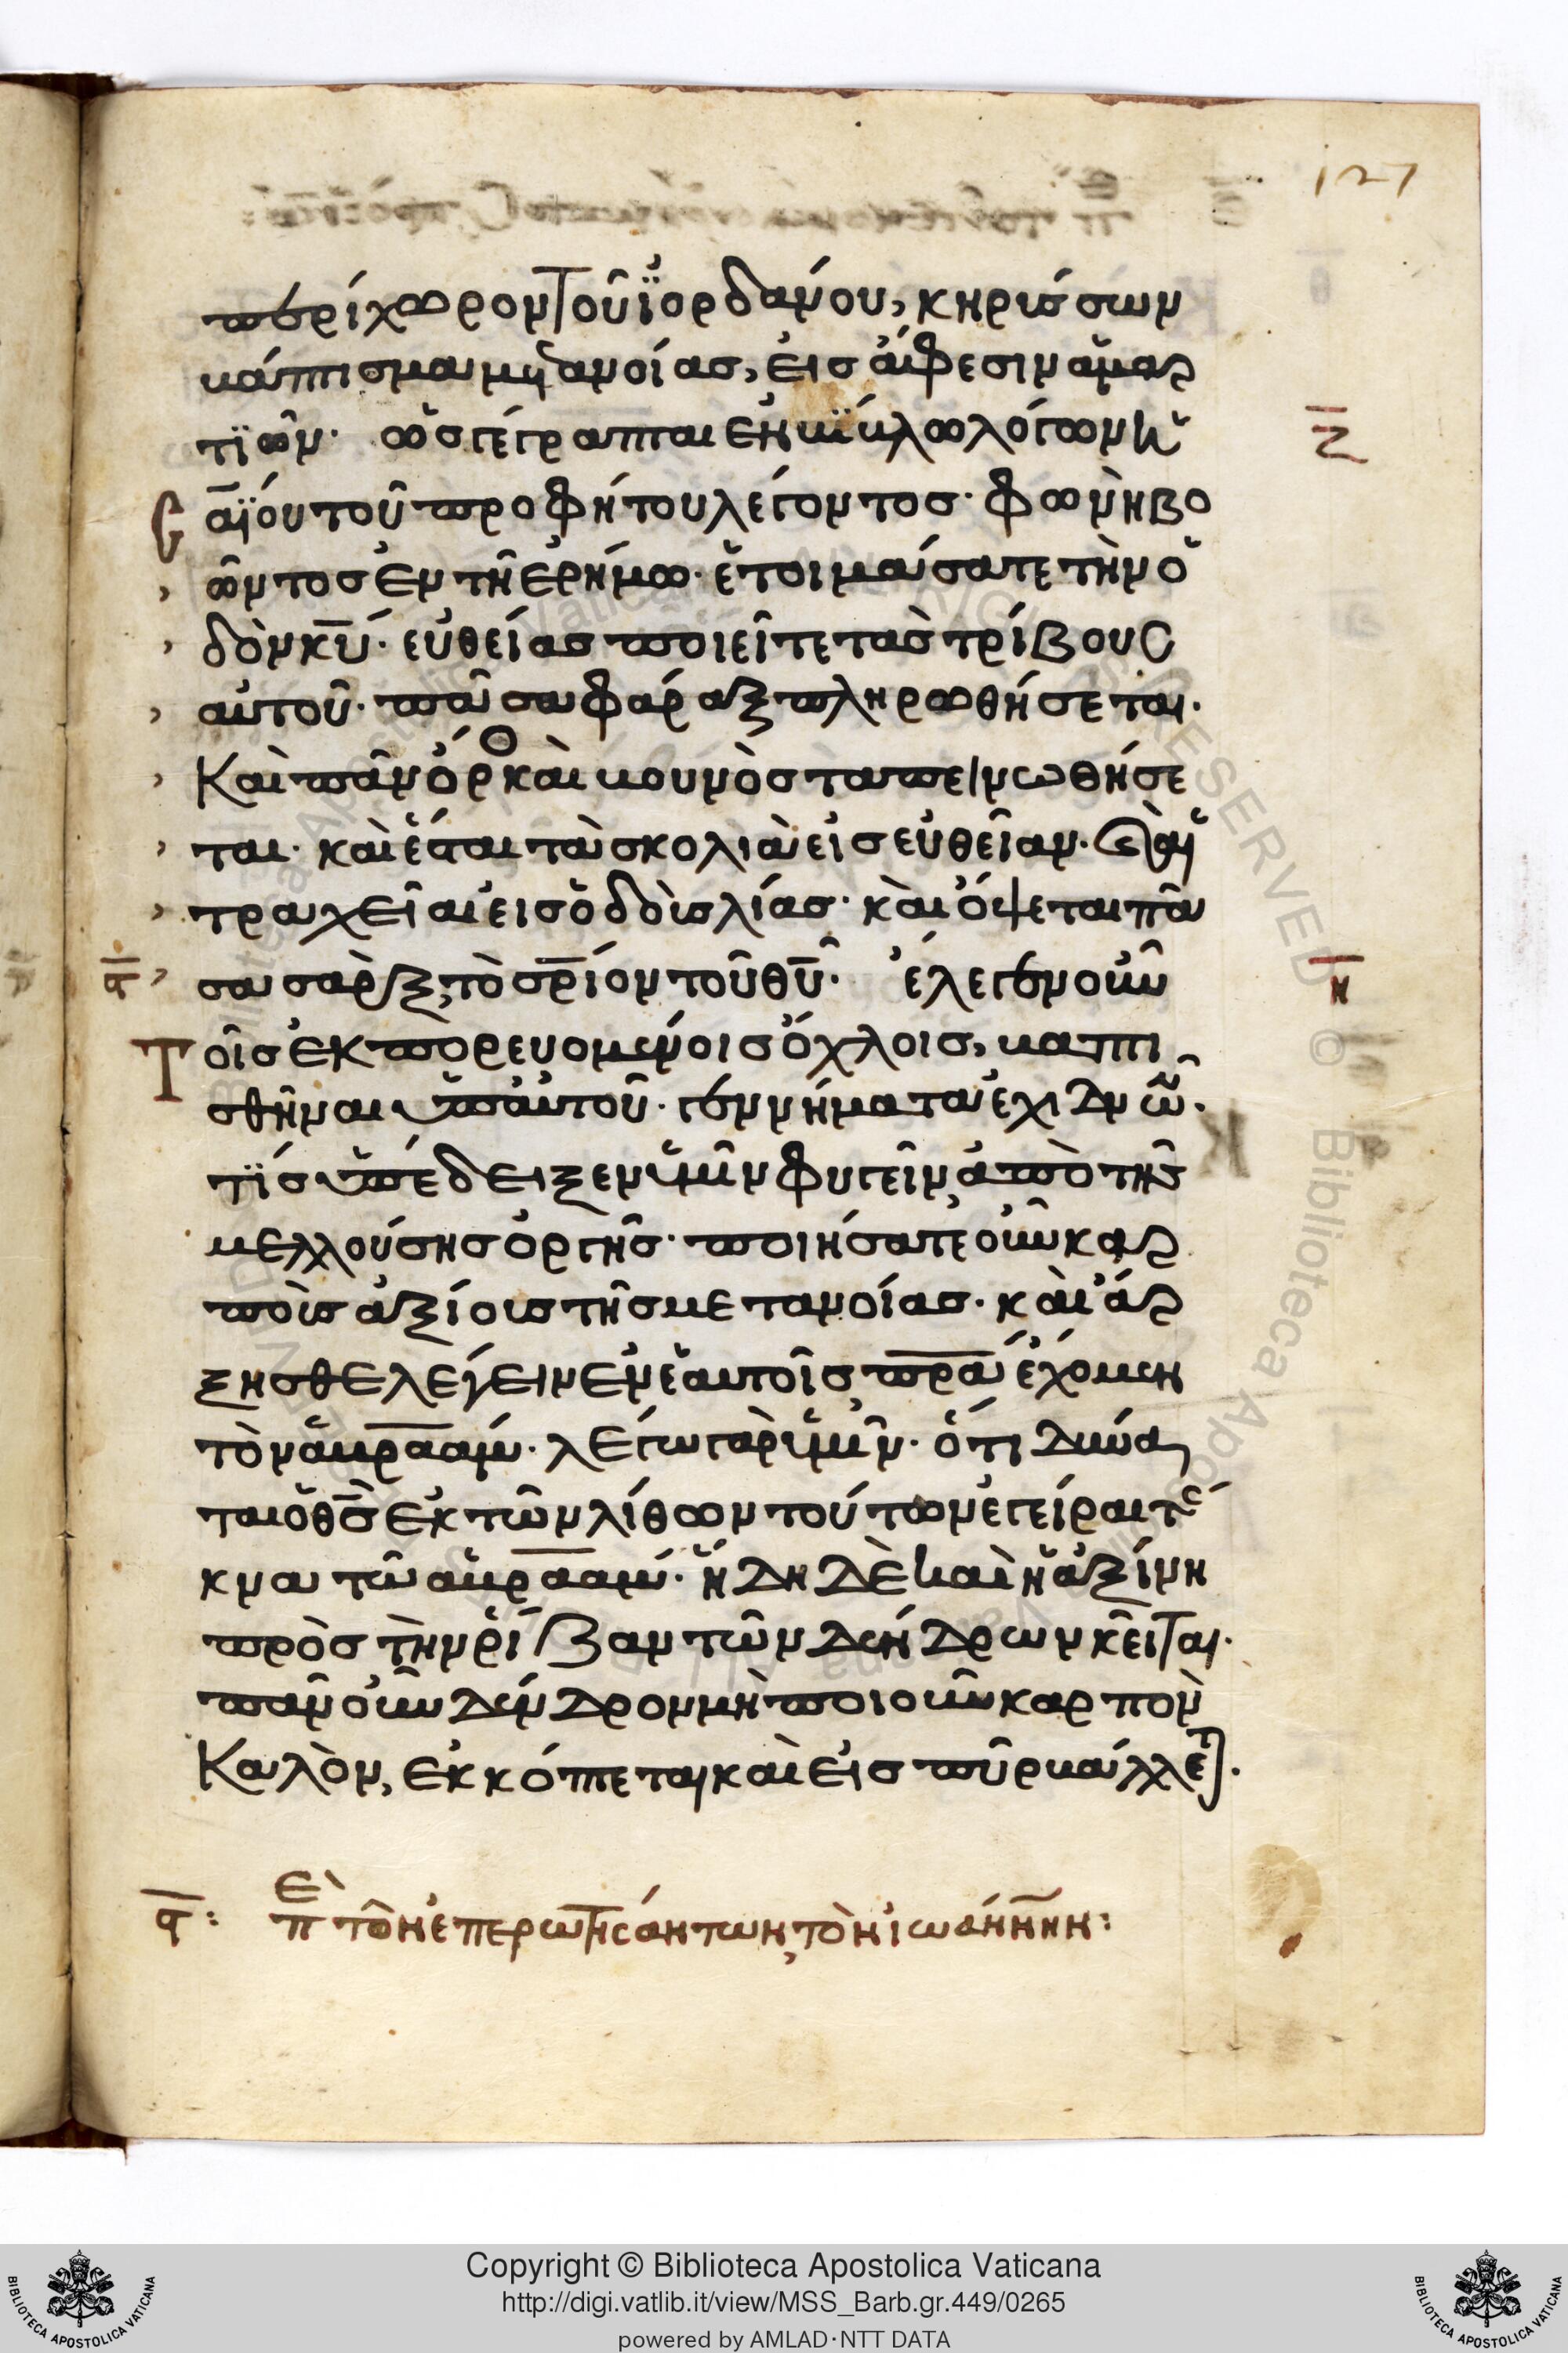 127
περίχωρον τοῦ ϊορδάνου, κηρύσσων
βάπτισμα μετανοίας, εἰς ἄφεσιν ἁμαρ
τϊῶν· ὡς γέγραπται ἐν βίβλω λόγων ἡ
σαΐου τοῦ προφήτου λέγοντος· φωνὴ βο
ῶντος ἐν τῆ ἐρήμω· ἑτοιμάσατε τὴν ὁ
δὸν κ̅υ̅· εὐθείας ποιεῖτε τὰς τρίβους
αὐτοῦ· πᾶσα φάραξ πληρωθήσεται·
Καὶ πᾶν ὄρο καὶ βουνὸς ταπεινωθήσε
ται· καὶ ἔσται τὰ σκολιὰ εἰς εὐθεῖαν· καὶ αἱ
τραχεῖαι εἰς ὁδοὺς λίας· καὶ ὄψεται πᾶ
σα σὰρξ, τὸ σ̅ρ̅ιον τοῦ θ̅υ̅· ἔλεγεν οὖν
τοῖς ἐκπορευομένοις ὄχλοις, βαπτι
σθῆναι ὑπ αὐτοῦ· γεννήματα ἐχιδνῶ·
τίς ὑπέδειξεν ὑμῖν φυγεῖν, ἀπὸ τῆς
μελλούσης ὀργῆς· ποιήσατε οὖν καρ
ποὺς ἀξίους τῆς μετανοίας· καὶ ἄρ
ξησθε λέγειν ἐν ἑαυτοῖς, π̅ρ̅α ἔχομεν
τὸν ἁβρ̅α̅αμ· λέγω γὰρ ὑμῖν· ὅτι δύνα
ται ὁ θ̅σ̅ ἐκ τῶν λίθων τούτων ἐγεῖραι τέ
κνα τῶ ἁβρ̅α̅αμ· ἤδη δὲ καὶ ἡ ἀξίνη
πρὸς τὴν ῥίζαν τῶν δένδρων κεῖται·
πᾶν οὖν δένδρον μὴ ποιοῦν καρπὸν
Καλὸν, ἐκκόπτεται καὶ εἰς πῦρ βάλλεται·
ζ̅
η̅
ϥ̅
ϥ̅: πε τῶν ἐπερωτησάντων, τὸν ἰωάννην:
Copyright © Biblioteca Apostolica Vaticana
http://digi.vatlib.it/view/MSS_Barb.gr.449/0265
powered by AMLAD·NTT DATA
BIBLIOTECA APOSTOLICA VATICANA
BIBLIOTECA APOSTOLICA VATICANA